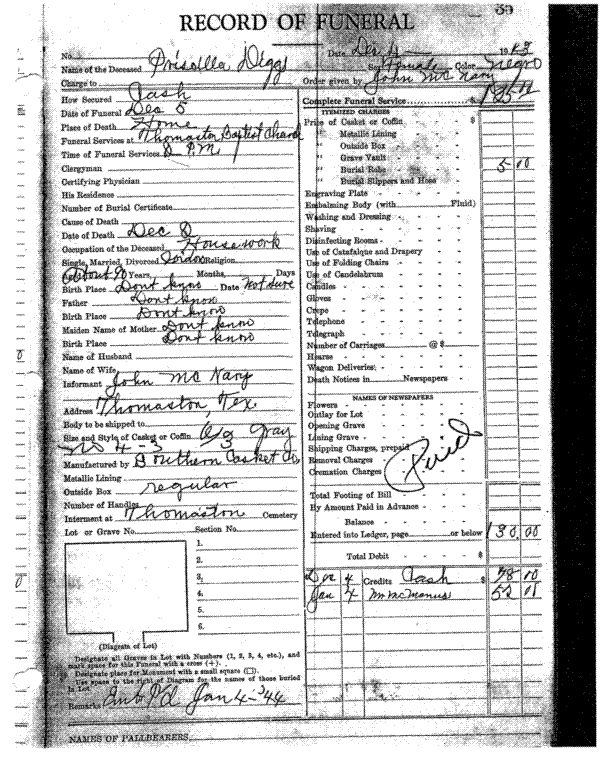 RECORD OF FUNERAL
No. Date Dec 4 1943
Name of the Deceased Priscilla Diggs Sex Female Color Negro
Charge to Order given by John Mc Nary
How Secured Cash
Date of Funeral Dec 5
Place of Death Home
Funeral Services at Thomaston Baptist Church
Time of Funeral Services 2 P.M.
Clergyman
Certifying Physician
His Residence
Number of Burial Certificate
Cause of Death
Date of Death Dec
Occupation of the Deceased House work
Single, Married, Divorced Religion
About Years, Months, Days
Birth Place Dont know Date Not Sure
Father Dont know
Birth Place Dont know
Maiden Name of Mother Dont know
Birth Place Dont know
Name of Husband
Name of Wife
Informant John Mc Nary
Address Thomaston, Tex
Body to be shipped to
Size and Style of Casket or Coffin 6/3 Gray
No 4-3
Manufactured by Southern Casket Co
Metallic Lining
Outside Box regular
Number of Handles
Interment at Thomaston Cemetery
Lot or Grave No. Section No.
1.
2.
3.
4.
5.
6.
(Diagram of Lot)
Designate all Graves in Lot with Numbers (1, 2, 3, 4, etc.), and
mark space for this Funeral with a cross (+).
Designate place for Monument with a small square (□).
Use space to the right of Diagram for the names of those buried
in Lot.
Remarks Jan 4-'44
NAMES OF PALLBEARERS
Complete Funeral Service $ 125 00
ITEMIZED CHARGES
Price of Casket or Coffin $
" Metallic Lining
" Outside Box
" Grave Vault
" Burial Robe 5 00
" Burial Slippers and Hose
Engraving Plate
Embalming Body (with Fluid)
Washing and Dressing
Shaving
Disinfecting Rooms
Use of Catafalque and Drapery
Use of Folding Chairs
Use of Candelabrum
Candles
Gloves
Crepe
Telephone
Telegraph
Number of Carriages @ $
Hearse
Wagon Deliveries
Death Notices in Newspapers
NAMES OF NEWSPAPERS
Flowers
Outlay for Lot
Opening Grave
Lining Grave
Shipping Charges, prepaid
Removal Charges
Cremation Charges
Paid
Total Footing of Bill
By Amount Paid in Advance
Balance
Entered into Ledger, page or below 130 00
Total Debit $
Dec 4 Credits Cash $ 78 00
Jan 4 Mr McManus 52 00